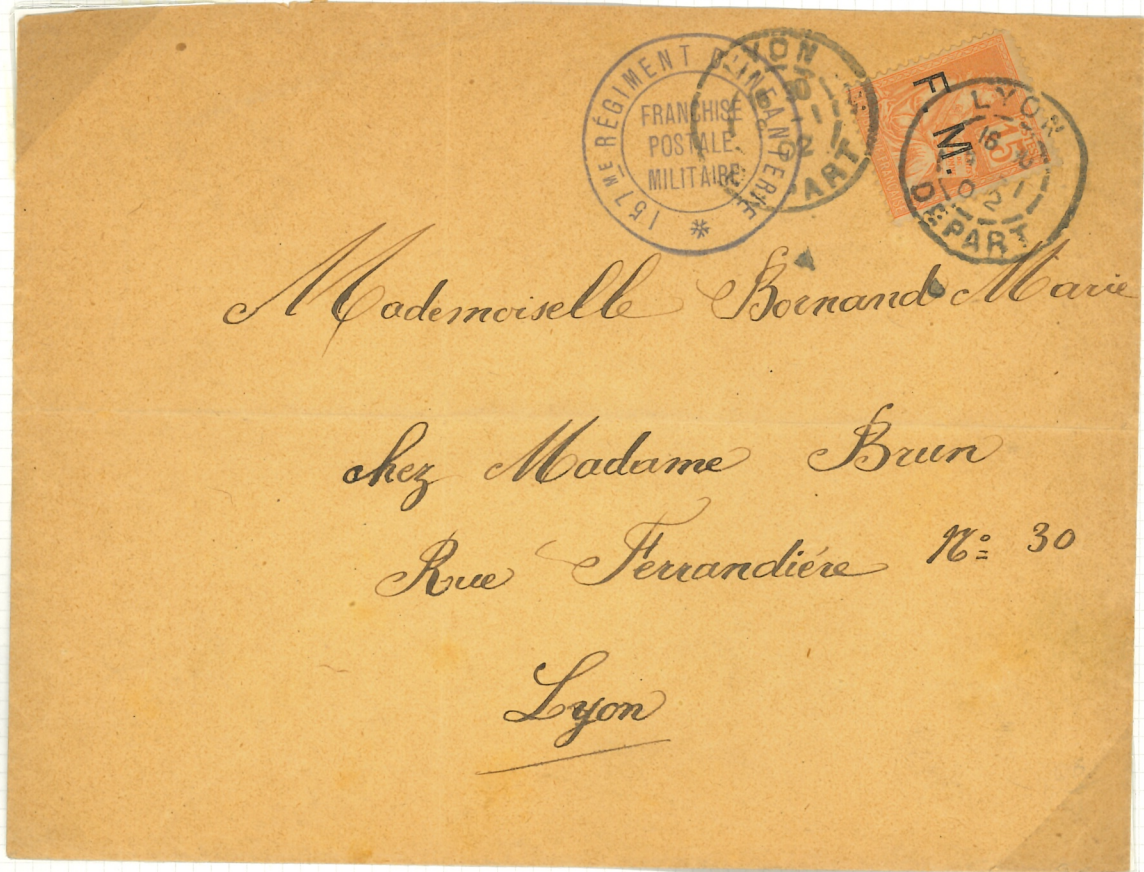 157ME RÉGIMENT D'INFANTERIE
FRANCHISE
POSTALE
MILITAIRE
LYON
DEPART
F. M.
15
LYON
16
DEPART
Mademoiselle Bornand Marie
chez Madame Brun
Rue Ferrandiére No 30
Lyon